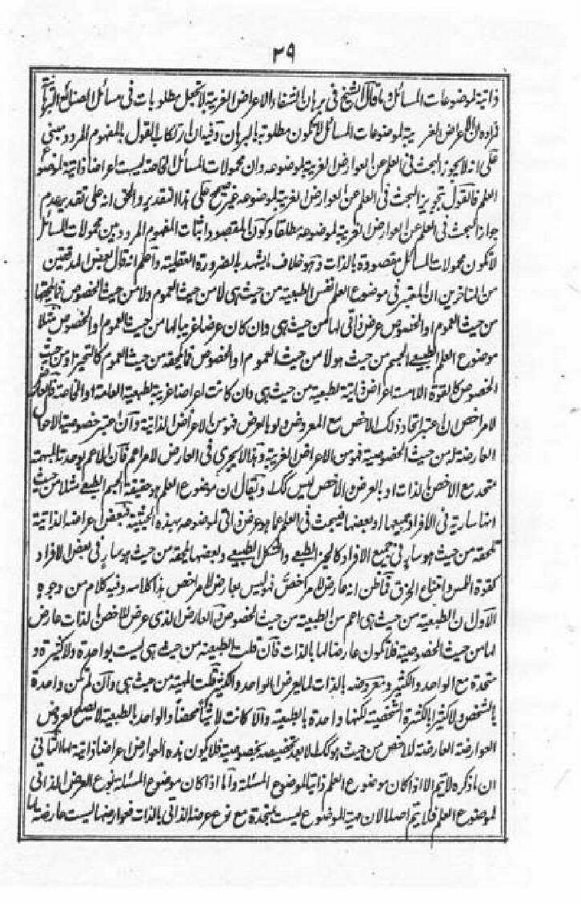 ٣٩
ذاتية لموضوعات المسائل وما قال الشيخ في برهان الشفاء الاعراض الغريبة لا تجعل مطلوبات في مسائل الصنائع البرهانية
فمراده ان الاعراض الغريبة لموضوعات المسائل لا تكون مطلوبة بالبرهان فيها ان ارتكاب القول بالمفهوم المردد مبني
على انه لا يجوز البحث في العلم عن العوارض الغريبة لموضوعه وان محمولات المسائل الخاصة ليست اعراضا ذاتية لموضوع
العلم فالقول بتجويز البحث في العلم عن العوارض الغريبة لموضوعه غير صحيح على هذا التقدير والحق انه على تقدير عدم
جواز البحث في العلم عن العوارض الغريبة لموضوعه مطلقا وكون المقصود اثبات المفهوم المردد بين محمولات المسائل
لا تكون محمولات المسائل مقصودة بالذات وهو خلاف ما يشهد به الضرورة العقلية واعلم انه قال بعض المدققين
من المتاخرين ان المعتبر في موضوع العلم نفس الطبيعة من حيث هي لا من حيث العموم ولا من حيث الخصوص فما يلحقها
من حيث العموم او الخصوص عرض ذاتي لها من حيث هي وان كان عرضا غريبا لها من حيث العموم او الخصوص مثلا
موضوع العلم الطبيعي الجسم من حيث هو لا من حيث العموم او الخصوص فما يلحقه من حيث العموم كالتحيز او من حيث
الخصوص كالقوة اللامسة اعراض ذاتية لطبيعته من حيث هي وان كانت اعراضا غريبة للطبيعة العامة او الخاصة فالعارض
لامر اخص ان اعتبر اتحاد ذلك الاخص مع المعروض ولو بالعرض فهو من الاعراض الذاتية وان اعتبر خصوصية الا
العارضة له من حيث الخصوصية فهو من الاعراض الغريبة وهذا لا يجري في العارض لامر اعم فان الاعم بوحدته المبهمة
متحد مع الاخص بالذات او بالعرض والاخص ليس كك ويقال ان موضوع العلم هو حقيقة الجسم الطبيعي مثلا من حيث
انها سارية في الافراد جميعها او بعضها فما يبحث في العلم عما هو عرض ذاتي لموضوعه بهذه الحيثية فبعض اعراضه الذاتية
تلحقه من حيث هو سار في جميع الافراد كالحيز الطبيعي والشكل الطبيعي وبعضها يلحقه من حيث هو سار في بعض الافراد
كقوة اللمس وامتناع الخرق فما ظن انه عارض لامر اخص فهو ليس بعارض لامر اخص هذا كلامه وفيه كلام من وجوه
الاول ان الطبيعة من حيث هي اعم من الطبيعة من حيث الخصوص فالعارض الذي عرض للاخص بالذات عارض
لها من حيث الخصوصية فلا تكون عارضا لها بالذات فان قلت الطبيعة من حيث هي ليست بواحدة ولا كثيرة و
متحدة مع الواحد والكثير ومعروضه بالذات لما يعرض الواحد والكثير قلت المهية من حيث هي وان لم تكن واحدة
بالشخص ولا كثيرا بالكثرة الشخصية لكنها واحدة بالطبيعة والا كانت لا شيئا محضا والواحد بالطبيعة لا يصلح لعروض
العوارض العارضة للاخص من حيث هو كك لا بعد تخصيصه بخصوصية فلا يكون هذه العوارض اعراضا ذاتية لها الثاني
ان ما ذكره لا يتم الا اذا كان موضوع العلم ذاتيا لموضوع المسئلة واما اذا كان موضوع المسئلة نوع العرض الذاتي
لموضوع العلم فلا يتم اصلا لان مهية الموضوع ليست بمتحدة مع نوع عرضه الذاتي بالذات فعوارضها ليست عارضة لها